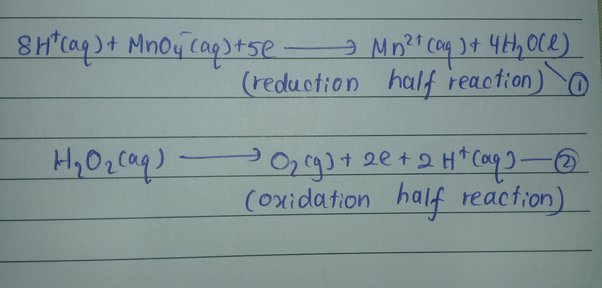 8H⁺(aq) + MnO₄⁻(aq) + 5e ⟶ Mn²⁺(aq) + 4H₂O(l)
(reduction half reaction) ①
H₂O₂(aq) ⟶ O₂(g) + 2e + 2H⁺(aq) — ②
(oxidation half reaction)